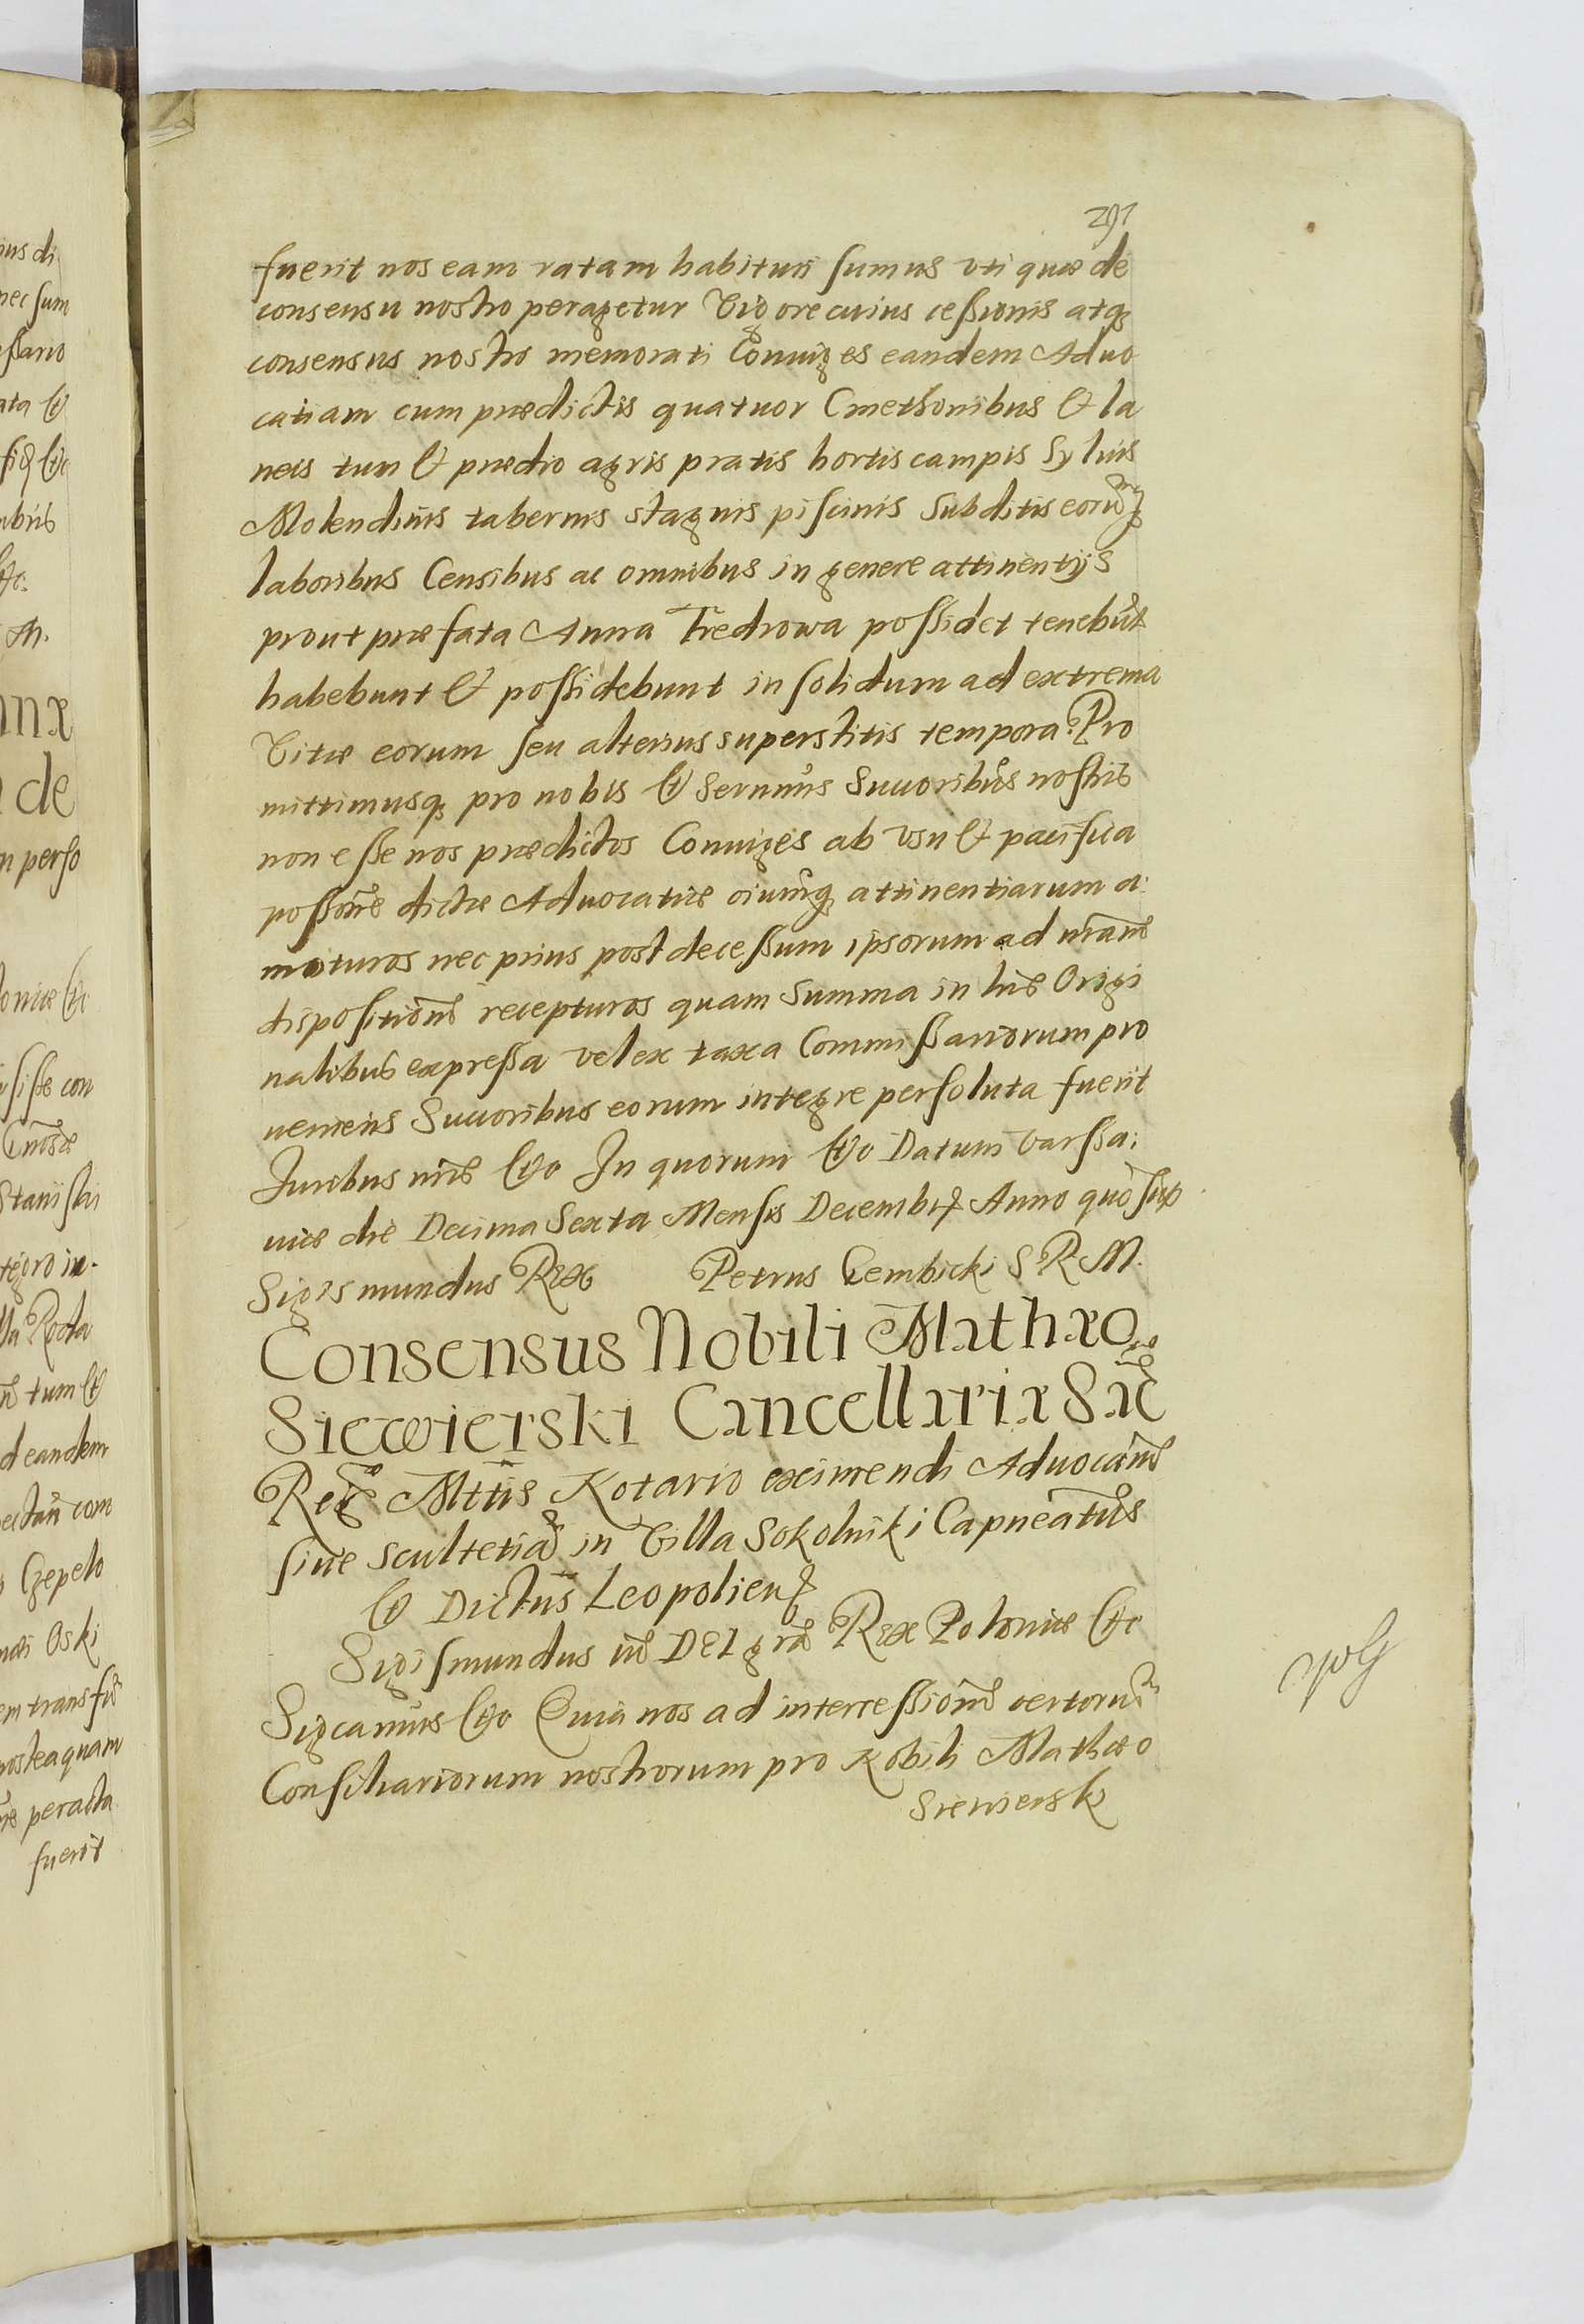 291
fuerit nos eam ratam habituri sumus vti quæ de
consensu nostro peragetur Vigore cuius cessionis atq
consensus nostri memorati Coniuges eandem Aduo
catiam cum prædictis quatuor Cmethonibus & la
neis tum & prædio agris pratis hortis campis Syluis
Molendinis tabernis stagnis piscinis Subditis eorumq
laboribus Censibus ac omnibus in genere attinentijs
prout præfata Anna Fredrowa possidet tenebūt
habebunt & possidebunt in solidum ad extrema
Vitæ eorum seu alterius superstitis tempora. Pro
mittimusq pro nobis & Sernmis Succoribus nostris
non esse nos prædictos Coniuges ab vsu & pacifica
possone dictæ Aduocatiæ oiumq attinentiarum a
moturos nec prius post decessum ipsorum ad nram
dispositione recepturos quam Summa in lris Origi
nalibus expressa vel ex taxa Commissariorum pro
ueniens Succoribus eorum integre persoluta fuerit
Iuribus nris &c In quorum &c Datum Varssa:
uiæ die Decima Sexta Mensis Decembr Anno quo sup
Sigismundus Rex Petrus Gembicki S R M.
Consensus Nobili Mathæo
Siewierski Cancellariæ Sac
Reg Mttis Notario eximendi Aduocam
siue Scultetia in Villa Sokolniki Capneatus
& Dictus Leopolien
Sigismundus iii DEI gra Rex Poloniæ &c
Sigcamus &c Quia nos ad intercessione certorum
Consiliariorum nostrorum pro Nobili Mathæo
Siewierski
ins di
nec sum
perso
de
Stanisla
d eandem
Oski
postea quam
peracta
fuerit